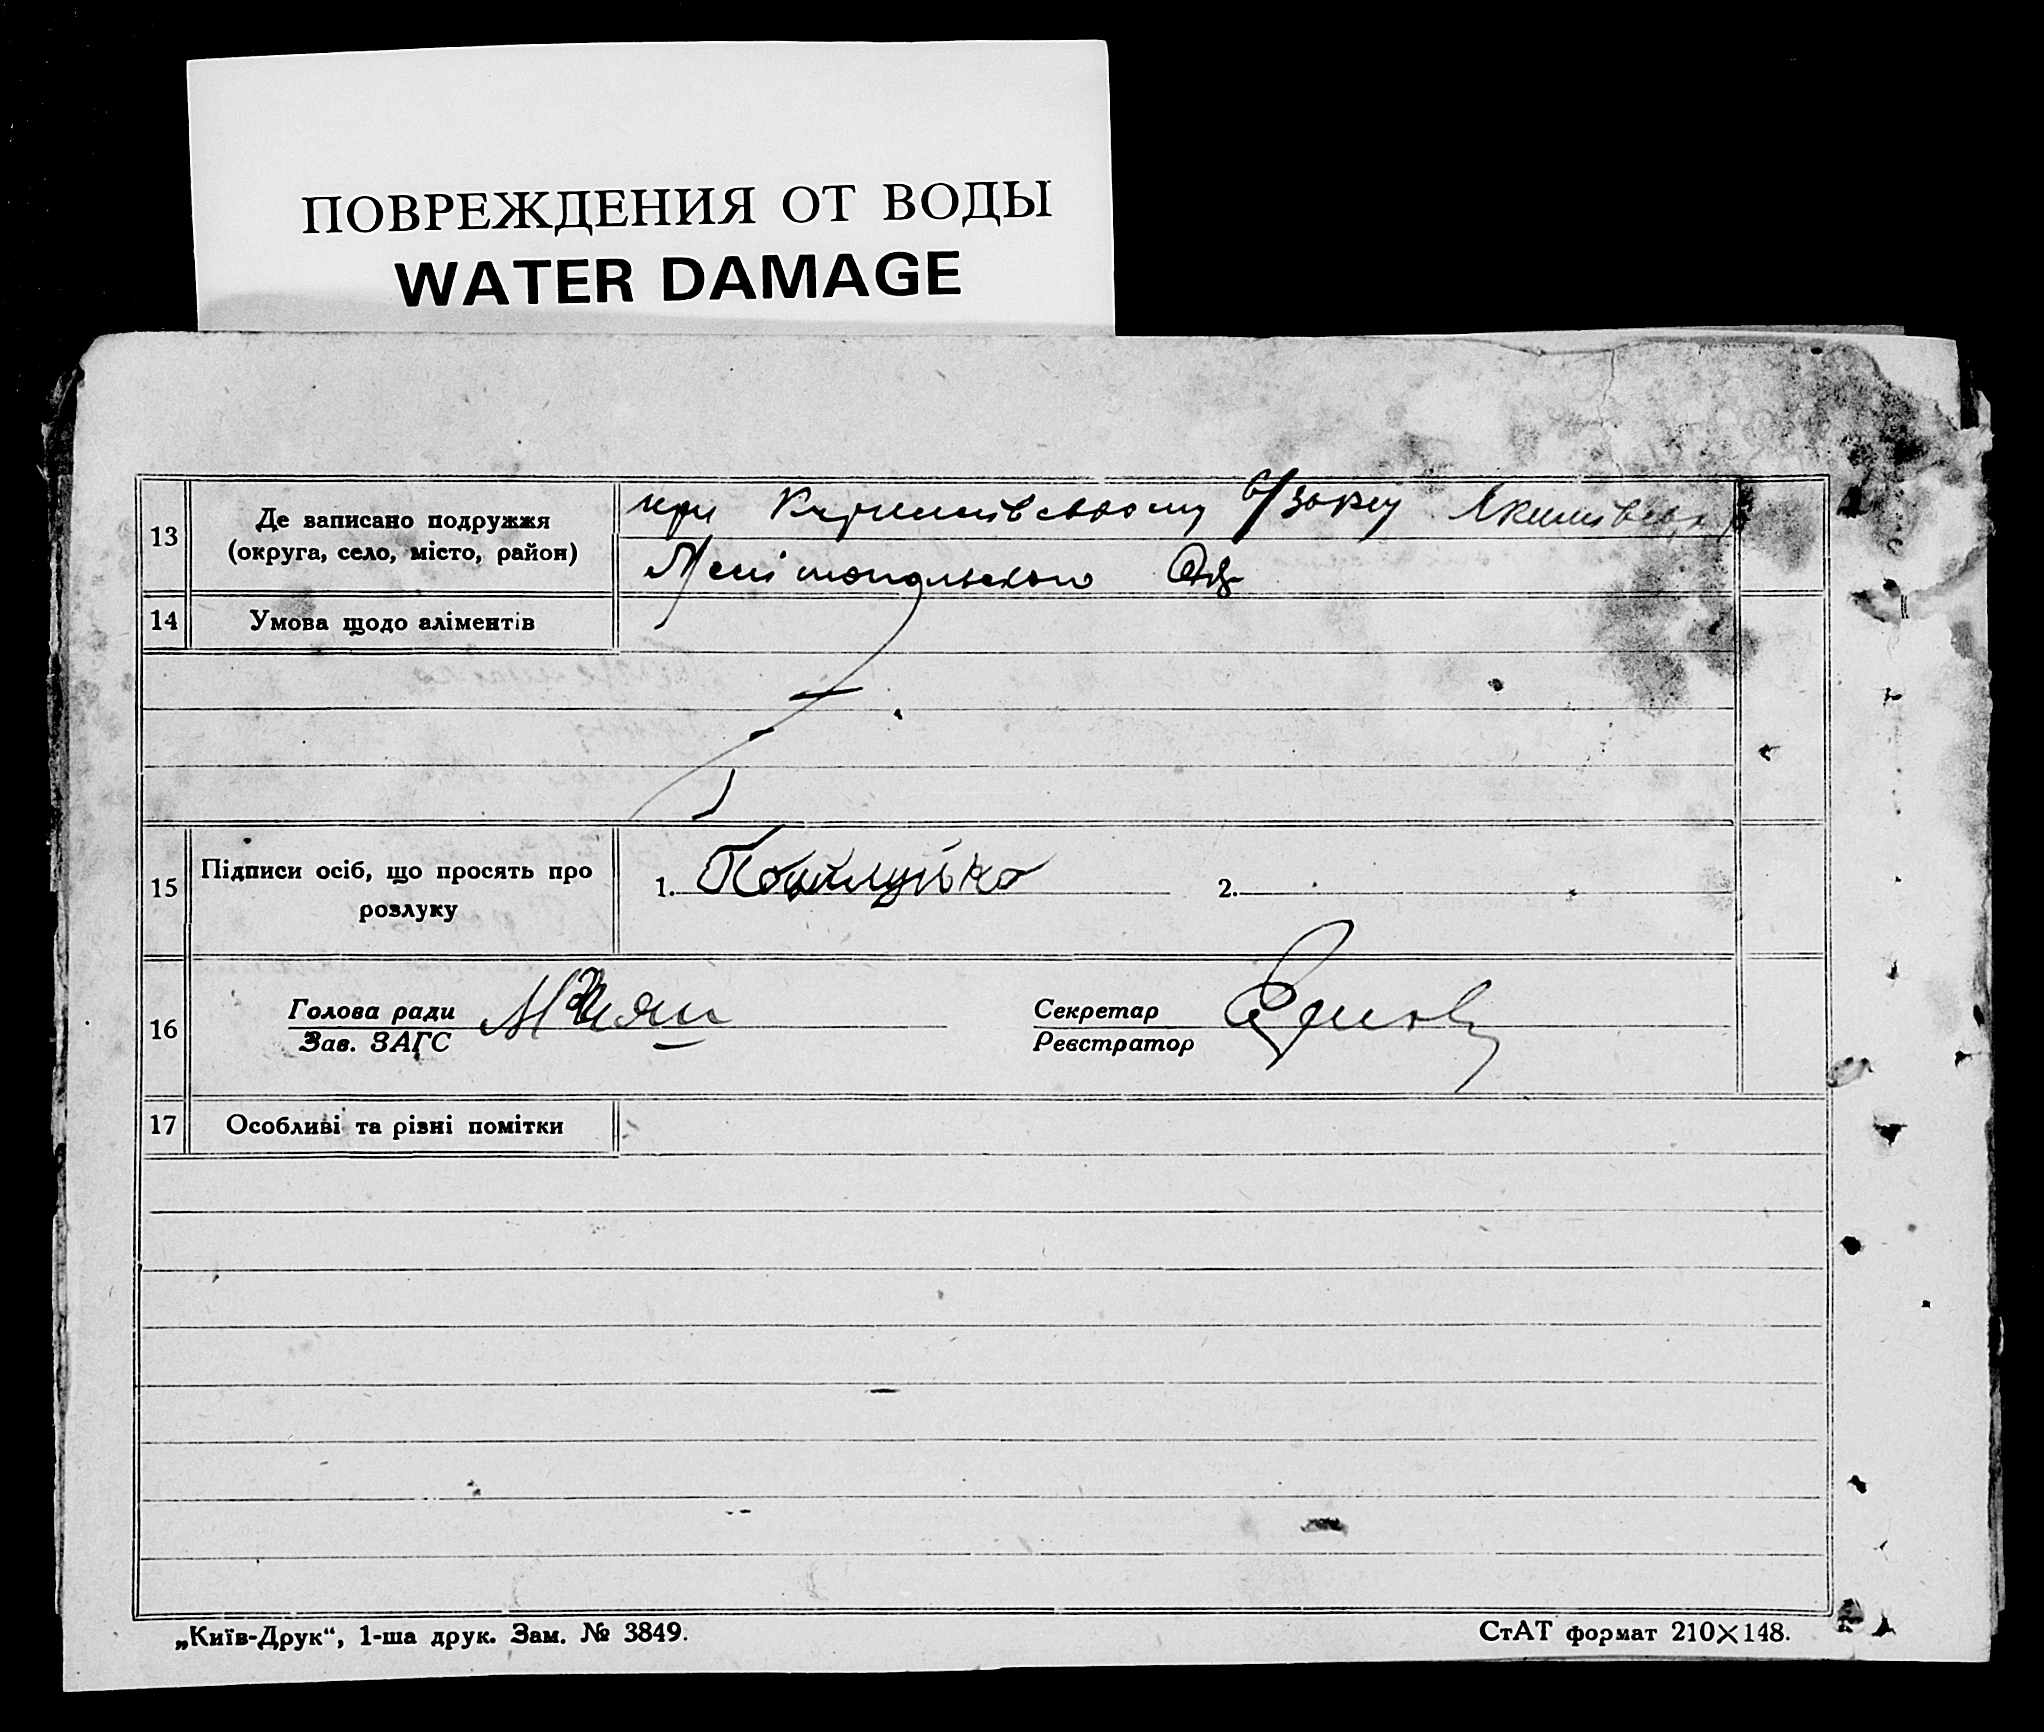 ПОВРЕЖДЕНИЯ ОТ ВОДЫ
WATER DAMAGE
13
Де записано подружжя
(округа, село, місто, район)
при
Мелітопольського
14
Умова щодо аліментів
15
Підписи осіб, що просять про
розлуку
1.
2.
16
Голова ради
Зав. ЗАГС
Секретар
Реєстратор
17
Особливі та різні помітки
„Київ-Друк“, 1-ша друк. Зам. № 3849.
СтАТ формат 210×148.